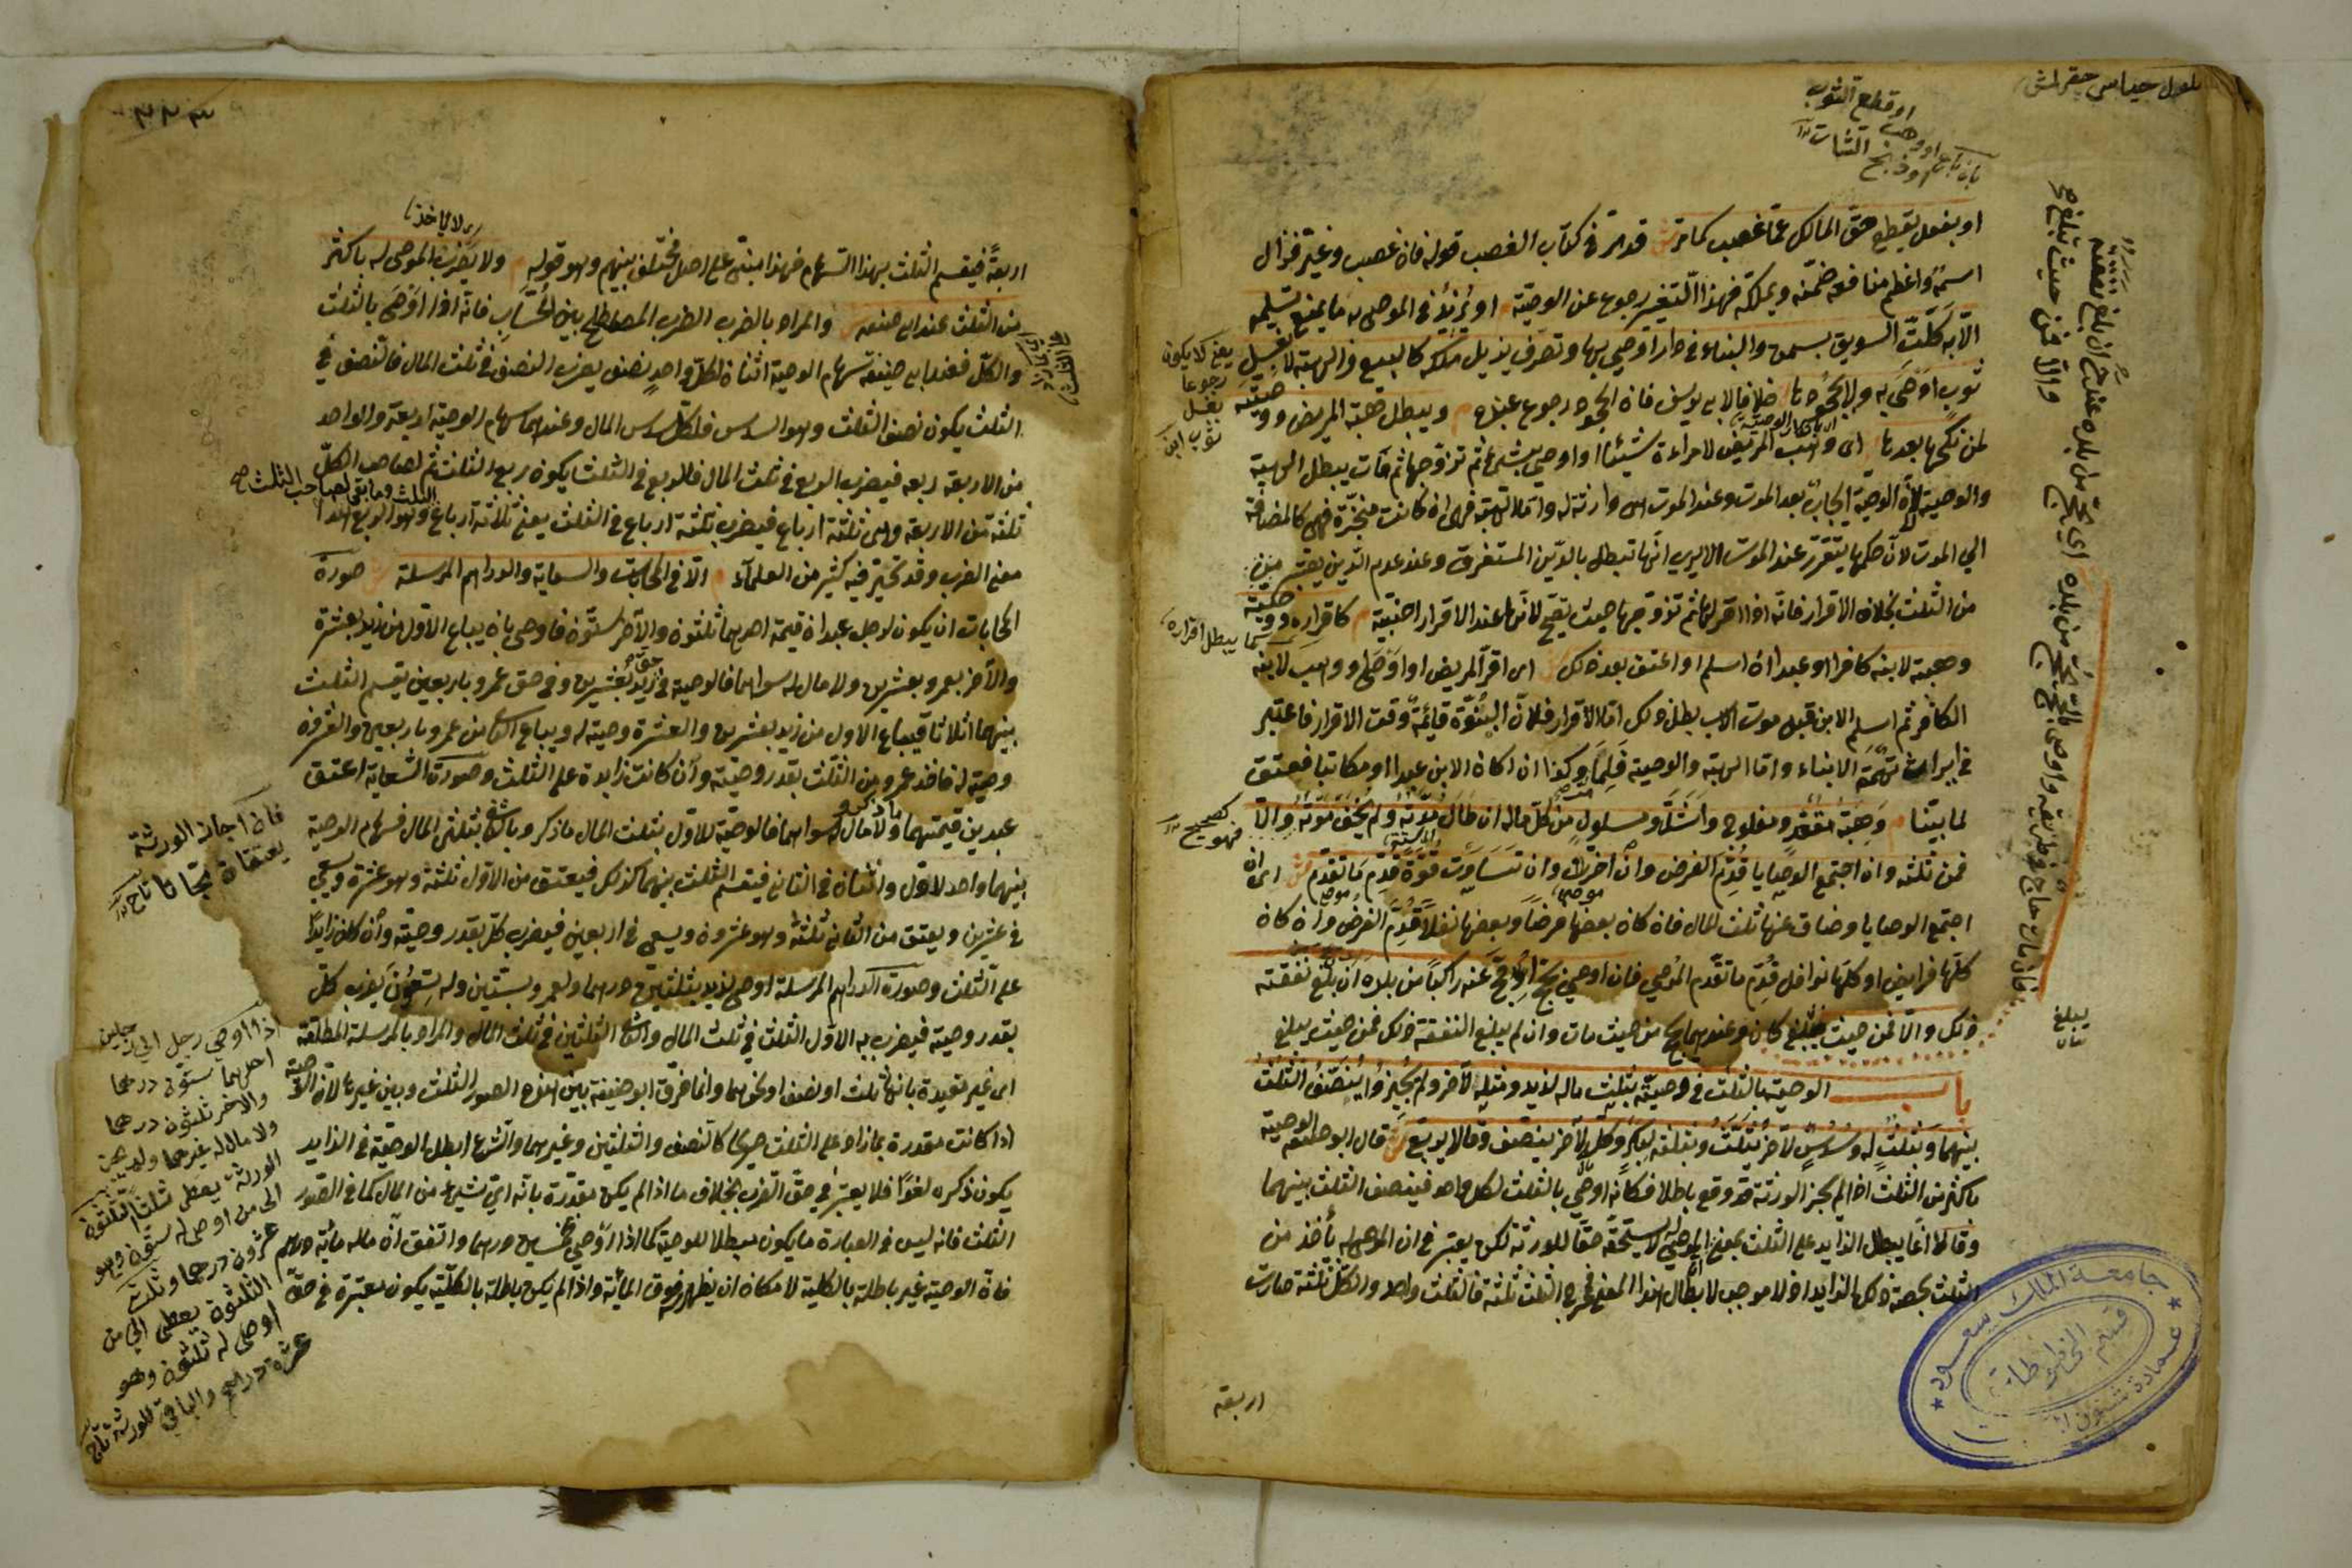 او قطع الثوب
او وهب
او ذبح الشاة
او بفعل يقطع حق المالك عما غصب كما مر ش قد مر في كتاب الغصب قوله فان غصب وغير فزال
اسمه واعظم منافعه ضمنه ويملكه فهذا التغير رجوع عن الوصية م او يزيد في الموصى به ما يمنع تسليمه
الا به كلت السويق بسمن والبناء في دار اوصى بها وتصرف يزيل ملكه كالبيع والهبة لا بغسل
ثوب اوصى به ولا بجحودها خلافا لابي يوسف فان الجحود رجوع عنده م ويبطل هبة المريض ووصيته
لمن نكحها بعدها اي وهب المريض لامراءة شيئا او اوصى بشئ لها ثم تزوجها ثم مات يبطل الهبة
والوصية لان الوصية ايجاب بعد الموت وعند الموت هي وارثة له واما الهبة فهي ان كانت منجزة فهي كالمضافة
الي الموت لان حكمها يتقرر عند الموت الا يرى انها تبطل بالدين المستغرق وعند عدم الدين يعتبر من
من الثلث بخلاف الاقرار فانه اذا اقر لها ثم تزوجها حيث يصح لانها عند الاقرار اجنبية م كاقراره ووصيته
وهبته لابنه كافرا او عبدا ان اسلم او اعتق بعد ذلك ش اي اقر المريض او اوصى او وهب لابنه
الكافر ثم اسلم الابن قبل موت الاب بطل ذلك اما الاقرار فلان البنوة قائمة وقت الاقرار فاعتبر
في ايراث تهمة الابناء واما الهبة والوصية فلما مر وكذا ان كان الابن عبدا او مكاتبا فعتق
لما بينا م وهبة مقعد ومفلوج واشل ومسلول من كل ماله ان طال مدته ولم يخف موته والا
فمن ثلثه وان اجتمع الوصايا قدم الفرض وان اخر وان تساوت قوة قدم ما تقدم ش اي ان
اجتمع الوصايا وضاق عنها ثلث المال فان كان بعضها فرضا وبعضها نفلا قدم الفرض وان كان
كلها فرايض او كلها نوافل قدم ما تقدم الموصي فان اوصى بحج احج عنه راكبا من بلده ان بلغ نفقته
ذلك والا فمن حيث يبلغ كان وعندهما يحج من حيث مات وان لم يبلغ النفقة ذلك فمن حيث يبلغ
باب الوصية بالثلث في وصية بثلث ماله لزيد ومثله لآخر ولم يجيزوا ينصف الثلث
بينهما وبثلث له وسدس لآخر يثلث وبثلثه لبكر وكله لآخر ينصف وقالا يربع ش قال ابو حنيفة الوصية
باكثر من الثلث اذا لم يجز الورثة قد وقع باطلا فكانه اوصى بالثلث لكل واحد فينصف الثلث بينهما
وقالا انما يبطل الزايد على الثلث بمعنى ان الموصى له لا يستحقه حقا للورثة لكن يعتبر في ان الموصى له يأخذ من
الثلث بحصة ذلك الزايد اذ لا موجب لابطال هذا المعنى فمخرج الثلث ثلثة فالثلث واحد والكل ثلثة صارت
اربعة
يعني لا يكون
رجوعا
بغسل
ثوب
فهو صحيح
جامعة الملك سعود
عمادة شئون
قسم المخطوطات
اربعة فيقسم الثلث بهذا السهام فهذا مبني على اصل مختلف بينهم وهو قوله م ولا يضرب الموصى له باكثر
من الثلث عند ابي حنيفة ش والمراد بالضرب الضرب المصطلح بين الحساب فانه اذا اوصى بالثلث
والكل فعند ابي حنيفة سهام الوصية اثنان لكل واحد نصف يضرب النصف في ثلث المال فالنصف في
الثلث يكون نصف الثلث وهو السدس فلكل سدس المال وعندهما سهام الوصية اربعة والواحد
من الاربعة ربعه فيضرب الربع في ثلث المال فالربع في الثلث يكون ربع الثلث ثم لصاحب الكل
ثلثة من الاربعة وهي ثلثة ارباع فيضرب ثلثة ارباع في الثلث يعني ثلاثة ارباع الثلث وهو الربع هذا
معنى الضرب وقد تحير فيه كثير من العلماء م الا في المحابات والسعاية والدراهم المرسلة ش صورة
المحابات ان يكون لرجل عبدان قيمة احدهما ثلثون والآخر ستون فاوصى بان يباع الاول من زيد بعشرة
والآخر بعمرو بعشرين ولا مال له سواهما فالوصية في حق زيد بعشرين وفي حق عمرو باربعين يقسم الثلث
بينهما اثلاثا فيباع الاول من زيد بعشرين والعشرة وصية له ويباع الثاني من عمرو باربعين والعشرون
وصية له فاخذ عمرو من الثلث بقدر وصيته وان كانت زايدة على الثلث وصورة السعاية اعتق
عبدين قيمتهما ما ذكر ولا مال له سواهما فالوصية للاول بثلث المال وبالثاني بثلثي المال فسهام الوصية
بينهما واحد للاول واثنان في الثاني فيقسم الثلث بينهما كذلك فيعتق من الاول ثلثه وهو عشرة ويسعى
في عشرين ويعتق من الثاني ثلثه وهو عشرون ويسعى في اربعين فيضرب كل بقدر وصيته وان كان زايدا
على الثلث وصورة الدراهم المرسلة اوصى لزيد بثلثين درهما ولعمرو بستين وله تسعون يضرب كل
بقدر وصيته فيضرب به الاول الثلث في ثلث المال والثاني الثلثين في ثلث المال والمراد بالمرسلة المطلقة
اي غير مقيدة بانها ثلث او نصف او نحوهما وانما فرق ابو حنيفة بين هذه الصور الثلث وبين غيرها لان الوصية
اذا كانت مقدرة بما زاد على الثلث صريحا كالنصف والثلثين وغيرهما والشرع ابطل الوصية في الزايد
يكون ذكره لغوا فلا يعتبر في حق الضرب بخلاف ما اذا لم يكن مقدرة بانه اي شئ من المال كما في الصور
الثلث فانه ليس في العبارة ما يكون مبطلا للوصية كما اذا اوصى بخمسين درهما واتفق ان ماله مائة درهم
فان الوصية غير باطلة بالكلية لامكان ان يظهر له فوق المائة واذا لم يكن باطلة بالكلية يكون معتبرة في حق
فان اجاز الورثة
يعتقان مجانا تاج
اذا اوصى رجل الى رجلين
احدهما ستون درهما
والآخر ثلثون درهما
ولا مال له غيرهما
الورثة يعطى ثلثا الثلثون
الى من اوصى له ستون وهو
عشرون درهما وثلث
الثلثون يعطى الى من
اوصى له ثلثون وهو
عشرة دراهم والباقي للورثة تاج